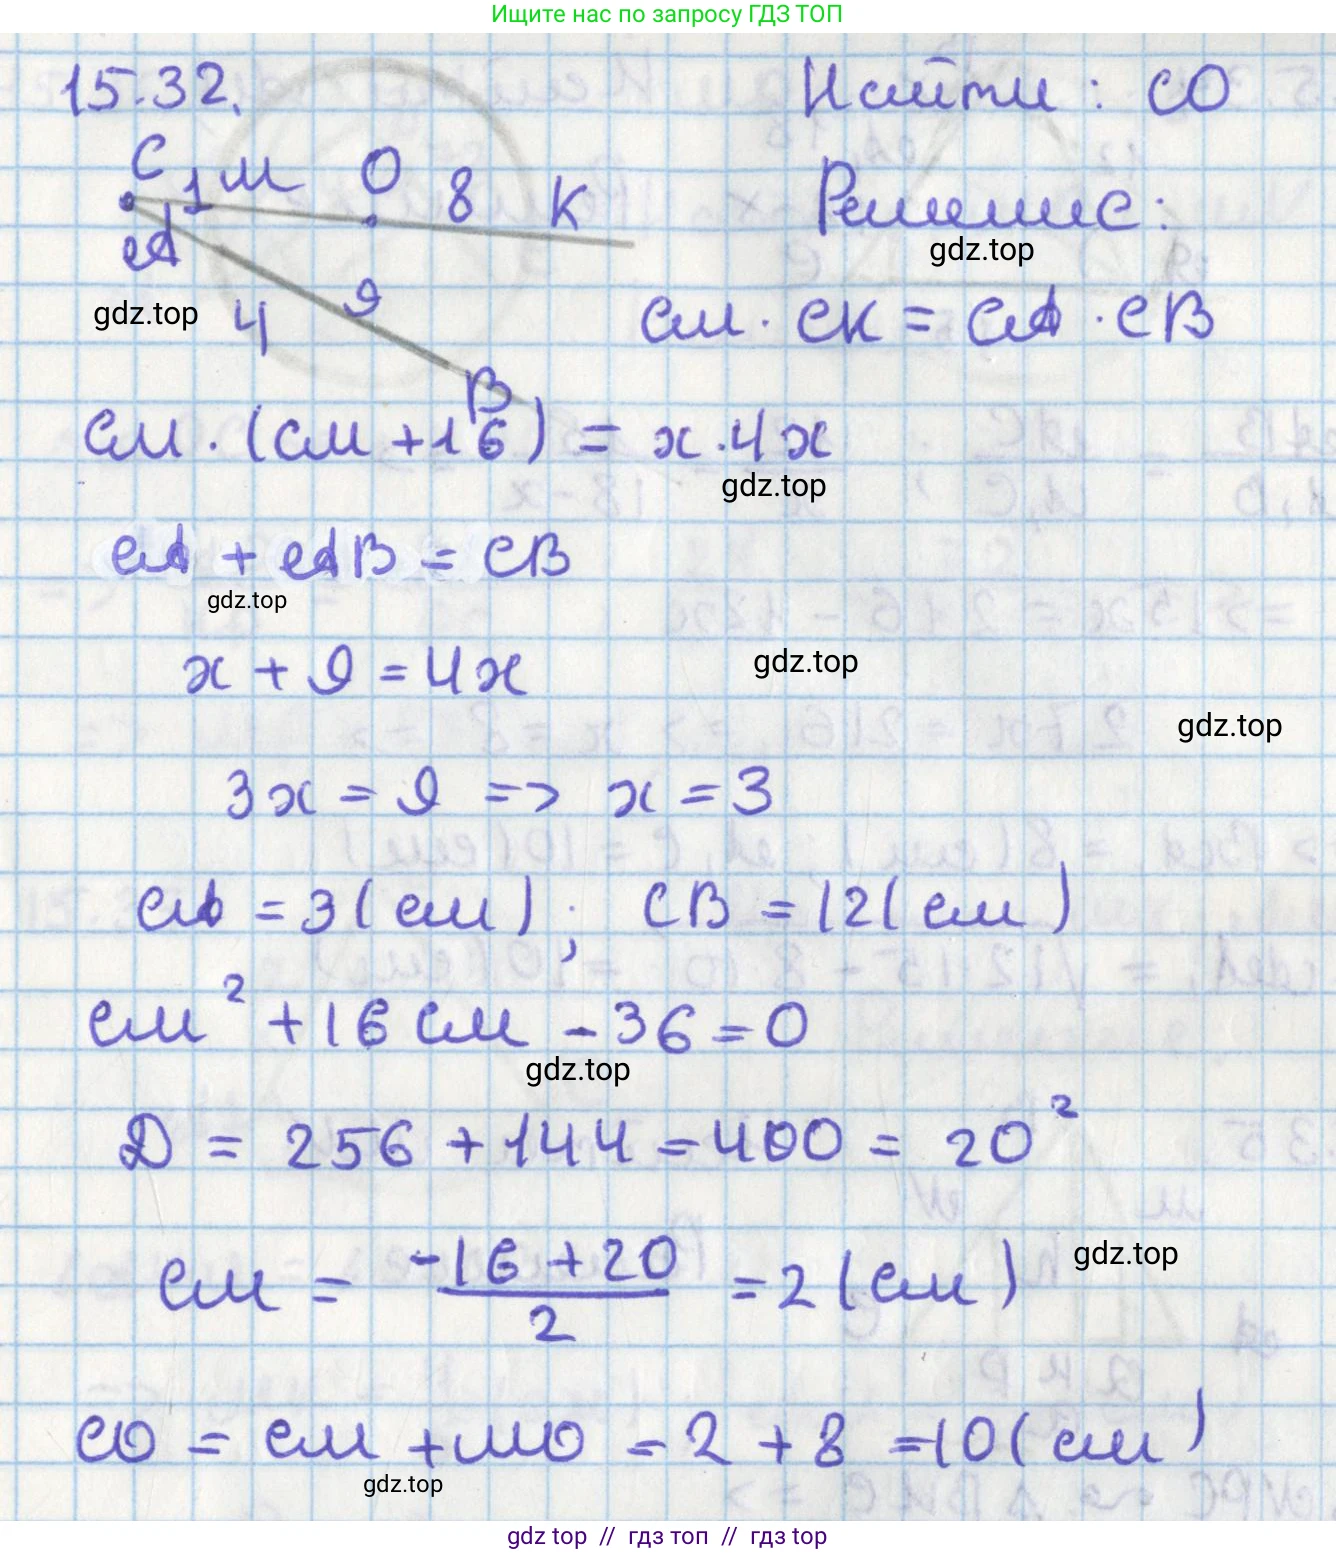 Ищите нас по запросу ГДЗ ТОП
15.32.
Найти: CO
C 1 M O 8 K
Решение:
gdz.top
A
gdz.top
4 9
B
CM · CK = CA · CB
CM · (CM + 16) = x · 4x
gdz.top
CA + AB = CB
gdz.top
x + 9 = 4x
gdz.top
gdz.top
3x = 9 => x = 3
CA = 3 (см); CB = 12 (см)
CM² + 16 CM - 36 = 0
gdz.top
D = 256 + 144 = 400 = 20²
CM = (-16 + 20)/2 = 2 (см)
gdz.top
CO = CM + MO = 2 + 8 = 10 (см)
gdz.top
gdz top // гдз топ // гдз top